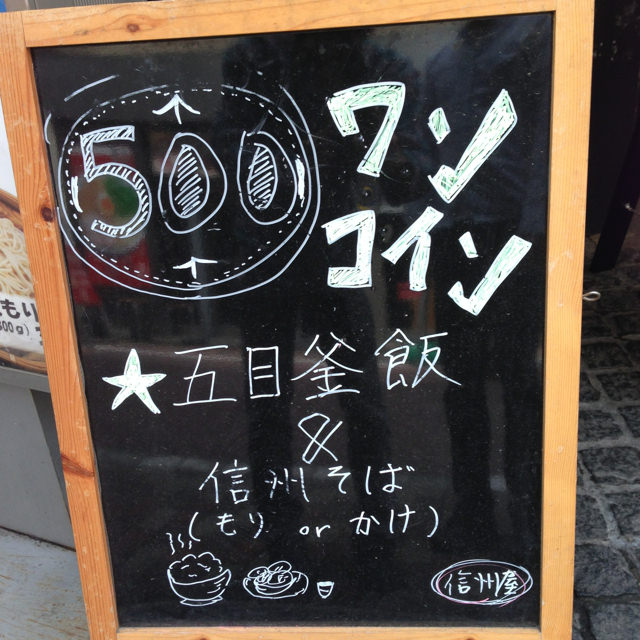 500
ワン
コイン
★五目釜飯
&
信州そば
(もり or かけ)
信州屋
もり